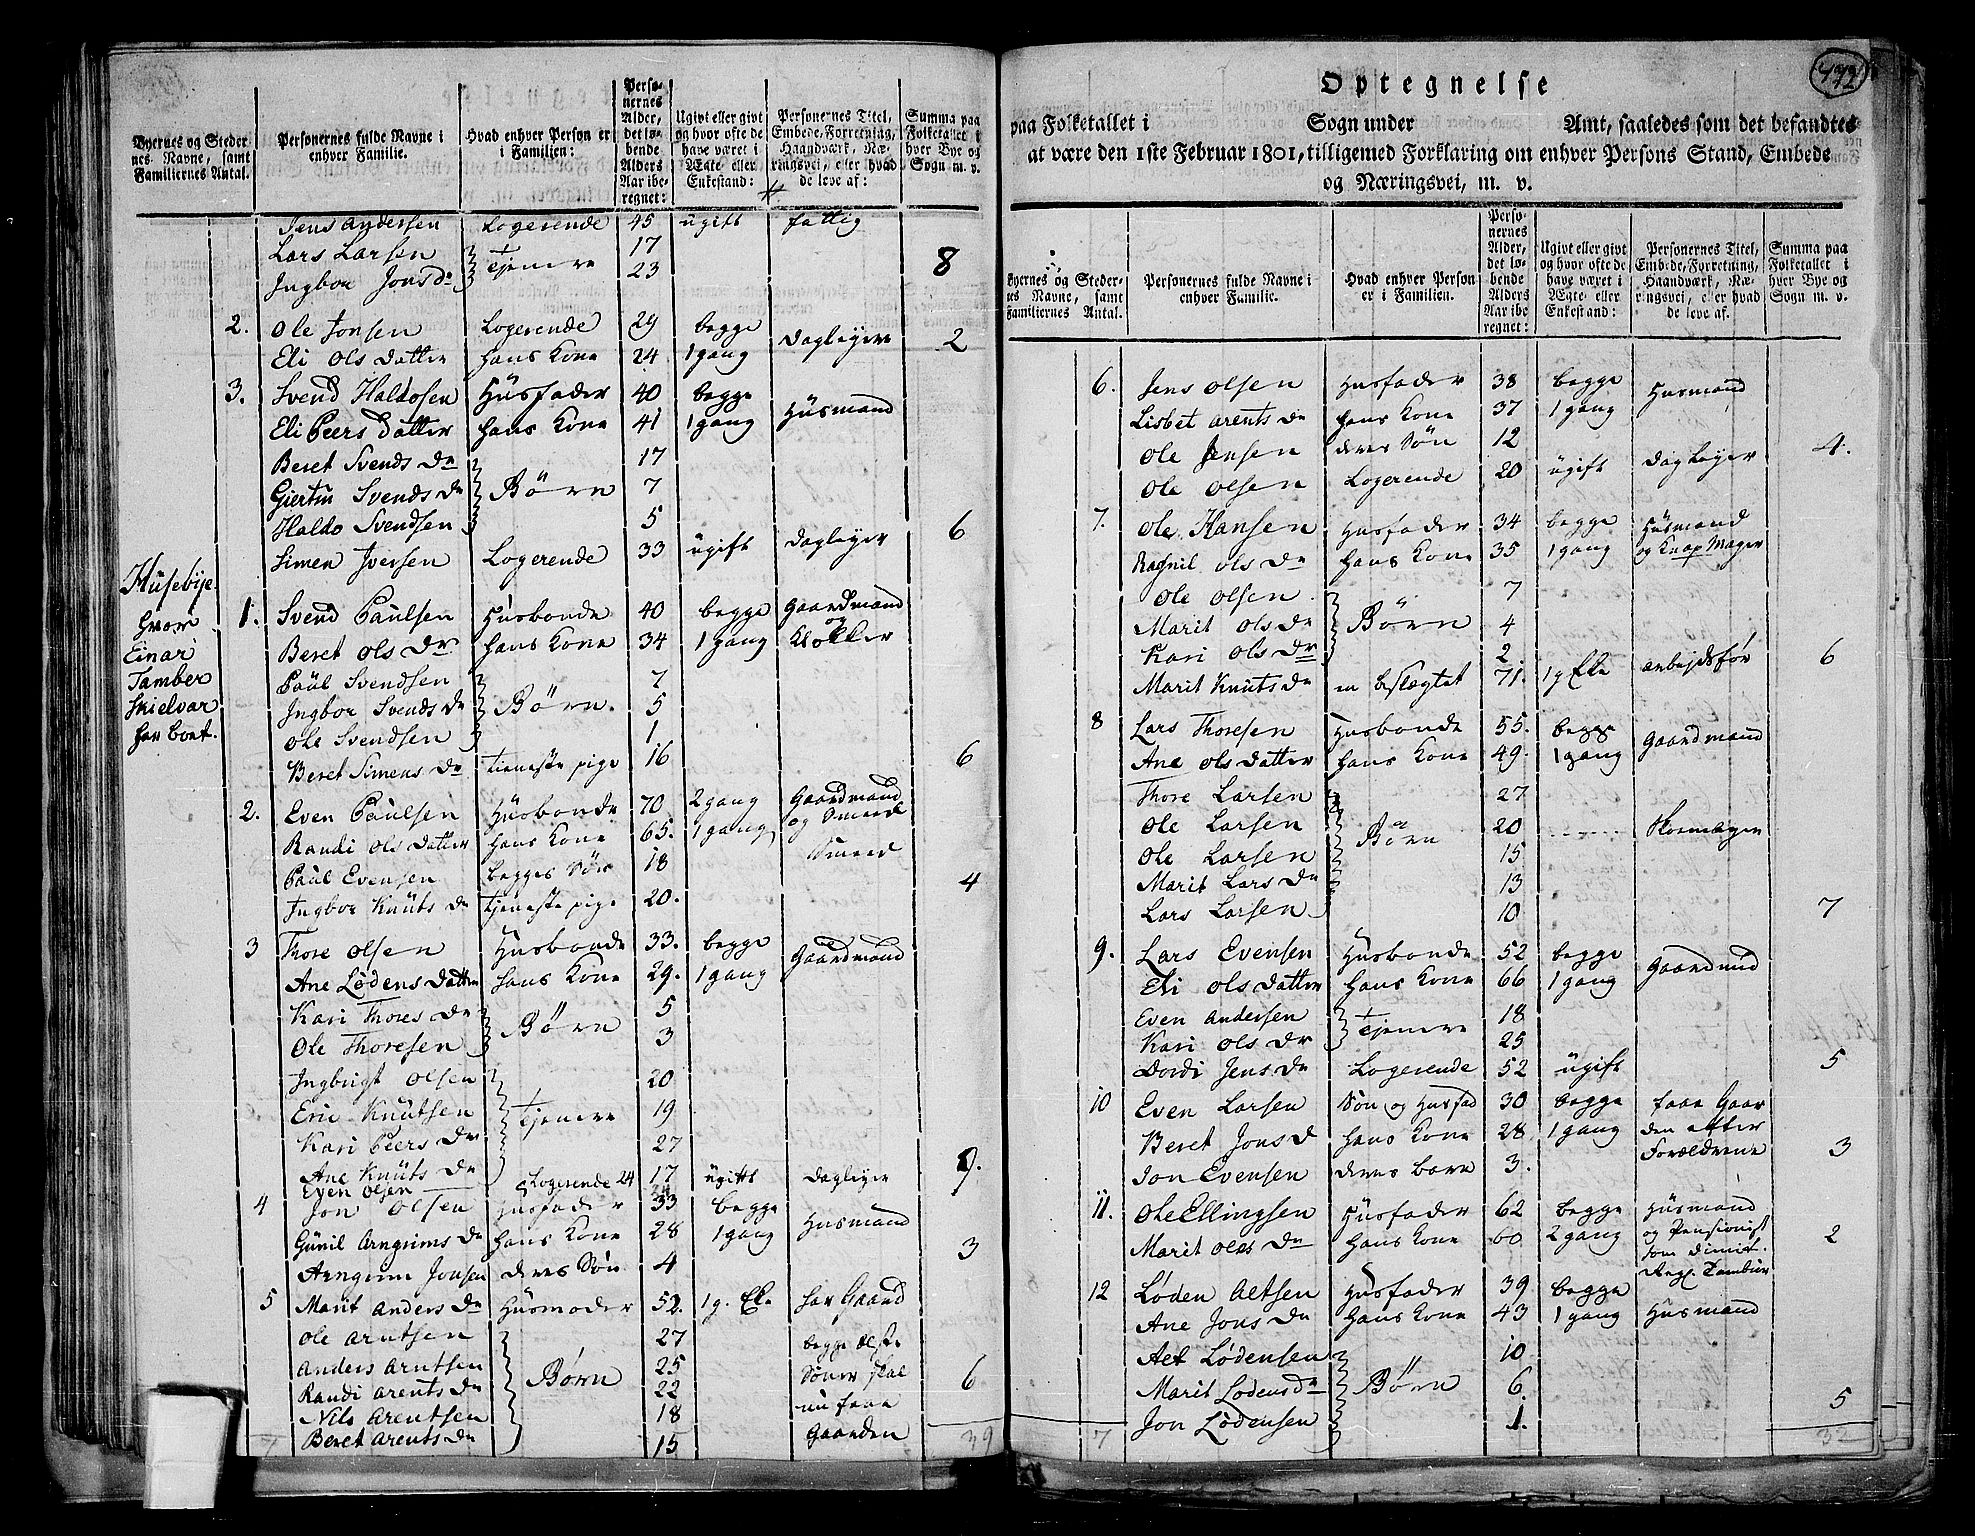 Byernes og Steder
nes Navne, samt
Familiernes Antal.
Personernes fulde Navne i
enhver Familie.
Hvad enhver Person er
i Familien:
Perso-
nernes
Alder,
det lø-
bende
Alders
Aar ibe-
regnet:
Ugivt eller givt
og hvor ofte de
have været i
Ægte- eller
Enkestand:
Personernes Titel,
Embede, Forretning,
Haandværk, Næ-
ringsvei, eller hvad
de leve af:
Summa paa
Folketallet i
hver Bye og
Sogn m. v.
Jens Andersen Logerende 45 ugift fattig
Lars Larsen 17
Ingbor Jonsdr Tjenere 23 8
2. Ole Jonsen Logerende 29 begge Dagleyere
Eli Ols Datter hans Kone 24 1 gang 2
3. Svend Haldosen Husfader 40 begge Husmand
Eli Peers Datter hans Kone 41 1 gang
Beret Svends Dr 17
Giertru Svends Dr Børn 7
Haldo Svendsen 5
Simen Iversen Logerende 33 ugift Dagleyer 6
Husebye
hvor
Einar
Tamber
Skielvar
har boet.
1. Svend Paulsen Husbonde 40 begge Gaardmand
og
Beret Ols Dr hans Kone 34 1 gang Klokker
Paul Svendsen 7
Ingbor Svends Dr Børn. 5
Ole Svendsen 1.
Beret Simens Dr tieneste pige 16 6
2. Even Paulsen Husbonde 70 2 gang Gaardmand
og Smeed
Randi Ols Datter hans Kone 65. 1 gang
Paul Evensen begges Søn 18 Smeed
Ingbor Knuts Dr tjeneste pige 20. 4
3 Thore Olsen Husbonde 33. begge Gaardmand
Ane Lødens Datter hans Kone 29. 1 gang
Kari Thores Dr Børn 5
Ole Thoresen 3
Ingbrigt Olsen 20
Eric Knutsen Tjenere 19
Kari Peers Dr 27
Ane Knuts Dr 17
Even Olsen Logerende 24 ugift Dagleyer 9.
4 Jon Olsen Husfader 33 begge Husmand
Gunil Arngrims Dr hans Kone 28 1 gang
Arngrim Jonsen deres Søn 4 3
5 Marit Anders Dr Husmoder 52. 1 g. Eke har Gaard
Ole Arntsen 27 begge ælste
Anders Arntsen 25 Sønner skal
Randi Arents Dr Børn 22 nu faae 6
Nils Arentsen 18
Beret Arents Dr 15 Gaarden
7 39
472
Optegnelse
paa Folketallet i Sogn under Amt, saaledes som det befandtes
at være den 1ste Februar 1801, tilligemed Forklaring om enhver Persons Stand, Embede
og Næringsvei, m. v.
Byernes og Steder-
nes Navne, samt
Familiernes Antal.
Personernes fulde Navne i
enhver Familie.
Hvad enhver Person
er i Familien.
Perso-
nernes
Alder,
det lø-
bende
Alders
Aar ibe-
regnet:
Ugivt eller givt
og hvor ofte de
have været i
Ægte- eller
Enkestand:
Personernes Titel,
Embede, Forretning,
Haandværk, Næ-
ringsvei, eller hvad
de leve af.
Summa paa
Folketallet i
hver Bye og
Sogn m. v.
6. Jens Olsen Husfader 38 begge Husmand
Lisbet Arents Dr hans Kone 37 1 gang
Ole Jensen deres Søn 12
Ole Olsen Logerende 20 ugift Dagleyer 4.
7. Ole Hansen Husfader 34 begge Husmand
Ragnil Ols Dr hans Kone 35 1 gang og Knap Mager
Ole Olsen 7
Marit Ols Dr Børn 4
Kari Ols Dr 2
Marit Knuts Dr en beslægtet 71. 1 g Eke arbejdsfør 6
8 Lars Thoresen Husbonde 55. begge Gaardmand
Ane Ols Datter hans Kone 49. 1 gang
Thore Larsen 27
Ole Larsen Børn 20 Skomager
Ole Larsen 15
Marit Lars Dr 13
Lars Larsen 10 7
9. Lars Evensen Husbonde 52 begge Gaardmand
Eli Ols Datter hans Kone 66 1 gang
Even Andersen Tjenere 18
Kari Ols Dr 25
Dordi Jens Dr Logerende 52 ugift 5
10 Even Larsen Søn og Husfad 30 begge faae Gaar
Beret Jons D hans Kone 28 1 gang den efter
Jon Evensen deres barn 3. Forældrene 3
11. Ole Ellingsen Husfader 62 begge Husmand
Marit Oles Dr hans Kone 60 2 gang og Pensionist 2
som dimit.
Regl. Tambur
12 Løden Aetsen Husfader 39 begge
Ane Jons Dr hans Kone 43 1 gang Husmand
Aet Lødensen 10
Marit Lødens Dr Børn 6.
Jon Lødensen 1. 5
7 32